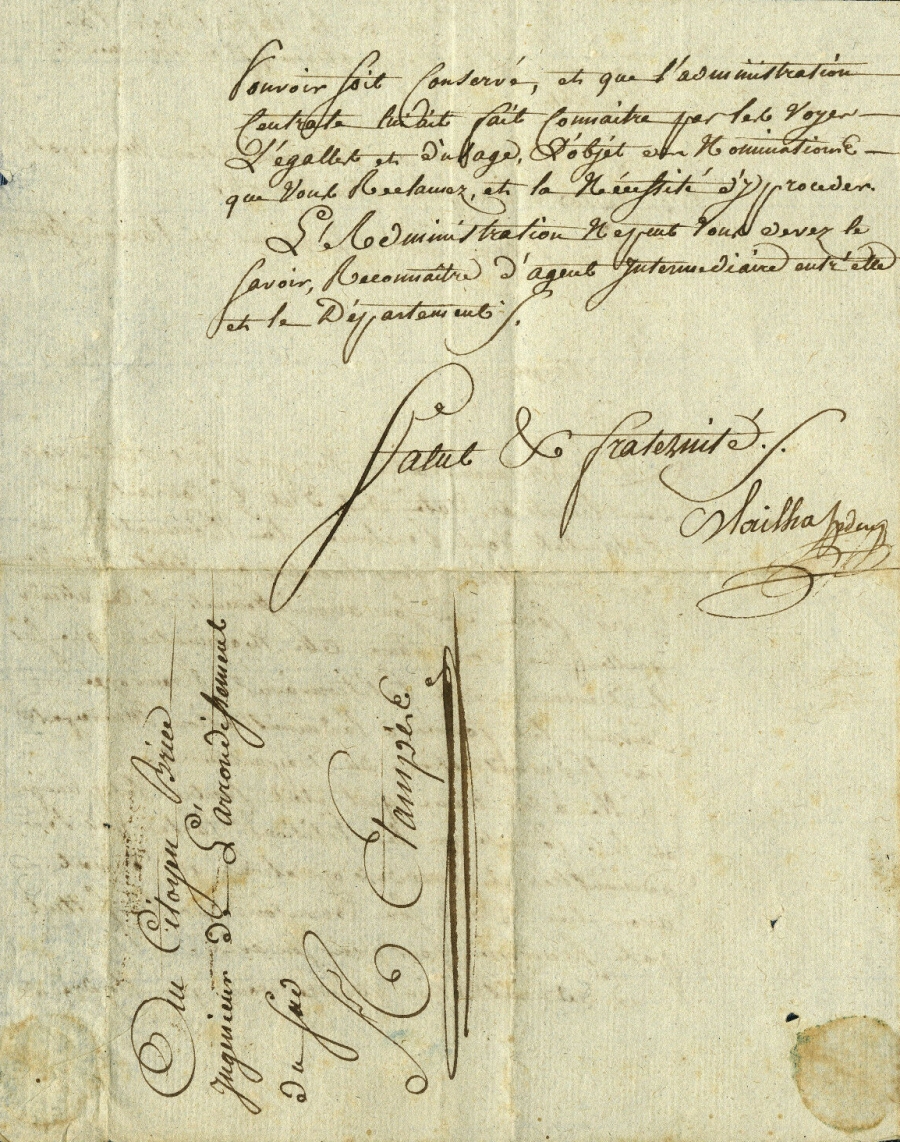 Pouvoir soit Conservé, et que l'administration
Centrale lui ait fait Connaitre par les Voyes
Légalles et d'usage, L'objet des Nominations
que Vous Reclamez, et la Nécessité d'y proceder.
L'Administration Ne peut Vous devez le
savoir, Reconnaitre d'agent Intermediaire entr'elle
et le Département.
Salut & fraternité.
Au Citoyen Brice
Ingenieur de L'arrondissement
du Sud
A Etampes